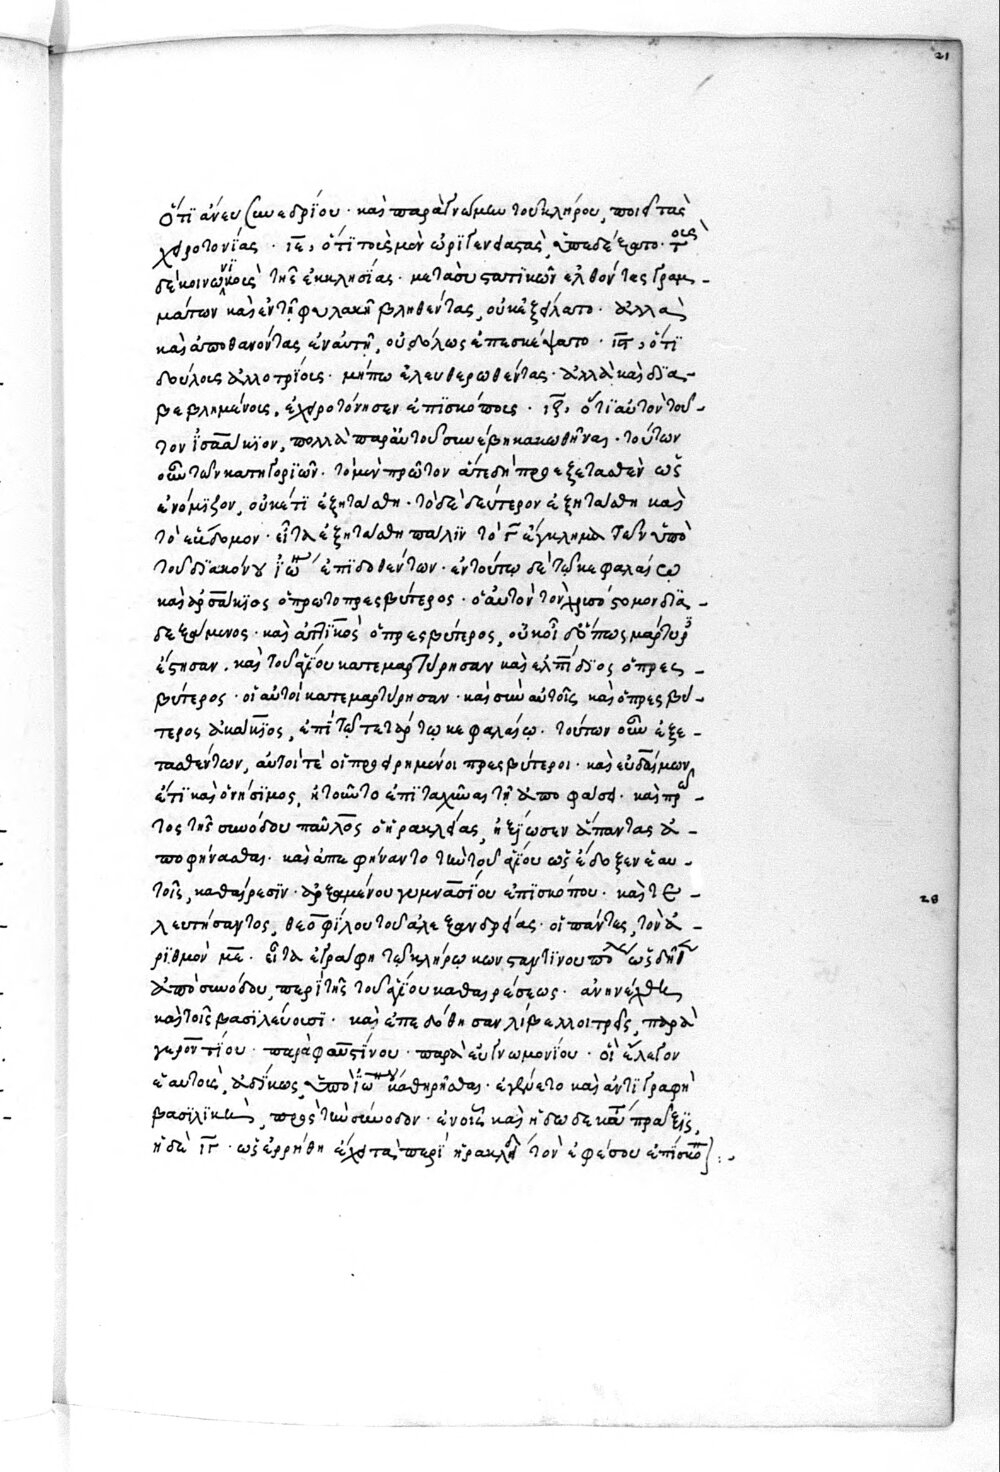 21
ὅτι ἄνευ συνεδρίου· καὶ παρὰ γνώμην τοῦ κλήρου, ποιεῖ τὰς
χειροτονίας· ιε, ὅτι τοὺς μὲν ὠριγενιαστὰς ὑπεδέξατο· τοὺς
δὲ κοινωνικοὺς τῆς ἐκκλησίας· μετὰ συστατικῶν ἐλθόντας γραμ-
μάτων καὶ ἐν τῇ φυλακῇ βληθέντας, οὐκ ἐξείλατο· ἀλλὰ
καὶ ἀποθανόντας ἐν αὐτῇ, οὐδ' ὅλως ἐπεσκέψατο· ις, ὅτι
δούλους ἀλλοτρίους· μήπω ἐλευθερωθέντας· ἀλλὰ καὶ δια-
βεβλημένους, ἐχειροτόνησεν ἐπισκόπους· ιζ, ὅτι αὐτὸν τοῦ-
τον ἰσαάκιον, πολλὰ παρ' αὐτοῦ συνέβη κακωθῆναι· τούτων
οὖν τῶν κατηγοριῶν· τὸ μὲν πρῶτον ἐπειδὴ προεξετασθὲν ὡς
ἐνόμιζον, οὐκέτι ἐξητάσθη· τὸ δὲ δεύτερον ἐξητάσθη καὶ
τὸ ἕβδομον· εἶτα ἐξητάσθη πάλιν τὸ γ ἔγκλημα τῶν ὑπὸ
τοῦ διακόνου ἰω ἐπιδοθέντων· ἐν τούτῳ δὲ τῷ κεφαλαίῳ
καὶ ἀρσάκιος ὁ πρωτοπρεσβύτερος· ὁ αὐτὸν τὸν χρυσόστομον δια-
δεξάμενος· καὶ ἀττικὸς ὁ πρεσβύτερος, οὐκ οἶδ' ὅπως μάρτυρες
ἔστησαν· καὶ τοῦ ἁγίου κατεμαρτύρησαν καὶ ἐλπίδιος ὁ πρεσ-
βύτερος· οἱ αὐτοὶ κατεμαρτύρησαν· καὶ σὺν αὐτοῖς καὶ ὁ πρεσβύ-
τερος ἀκάκιος, ἐπὶ τῷ τετάρτῳ κεφαλαίῳ· τούτων οὖν ἐξε-
τασθέντων, αὐτοί τε οἱ προειρημένοι πρεσβύτεροι· καὶ εὐδαίμων,
ἔτι καὶ ὀνήσιμος, ᾐτοῦντο ἐπιταχῦναι τῇ ἀποφάσει· καὶ πρῶ-
τος τῆς συνόδου παῦλος ὁ ἡρακλείας, ἠξίωσεν ἅπαντας ἀ-
ποφήνασθαι· καὶ ἀπεφήναντο τὴν τοῦ ἁγίου ὡς ἔδοξεν ἑαυ-
τοῖς, καθαίρεσιν· ἀρξαμένου γυμνασίου ἐπισκόπου· καὶ τε-
λευτήσαντος, θεοφίλου τοῦ ἀλεξανδρείας· οἱ πάντες, τὸν ἀ-
ριθμὸν με· εἶτα ἐγράφη τῷ κλήρῳ κωνσταντίνου πολ ὡς δῆθεν
ἀπὸ συνόδου, περὶ τῆς τοῦ ἁγίου καθαιρέσεως· ἀνηνέχθη
καὶ τοῖς βασιλεύουσι· καὶ ἐπεδόθησαν λίβελλοι τρεῖς, παρὰ
γεροντίου· παρὰ φαυστίνου· παρὰ εὐγνωμονίου· οἳ ἔλεγον
ἑαυτοὺς, ἀδίκως, ὑπὸ ἰω καθῃρῆσθαι· ἐγένετο καὶ ἀντιγραφὴ
βασιλικὴ, πρὸς τὴν σύνοδον· ἐν οἷς καὶ ἡ δωδεκάτη πρᾶξις,
ἡ δὲ ιγ· ὡς ἐρρήθη ἔχει τὰ περὶ ἡρακλείδ τὸν ἐφέσου ἐπίσκοπ
28